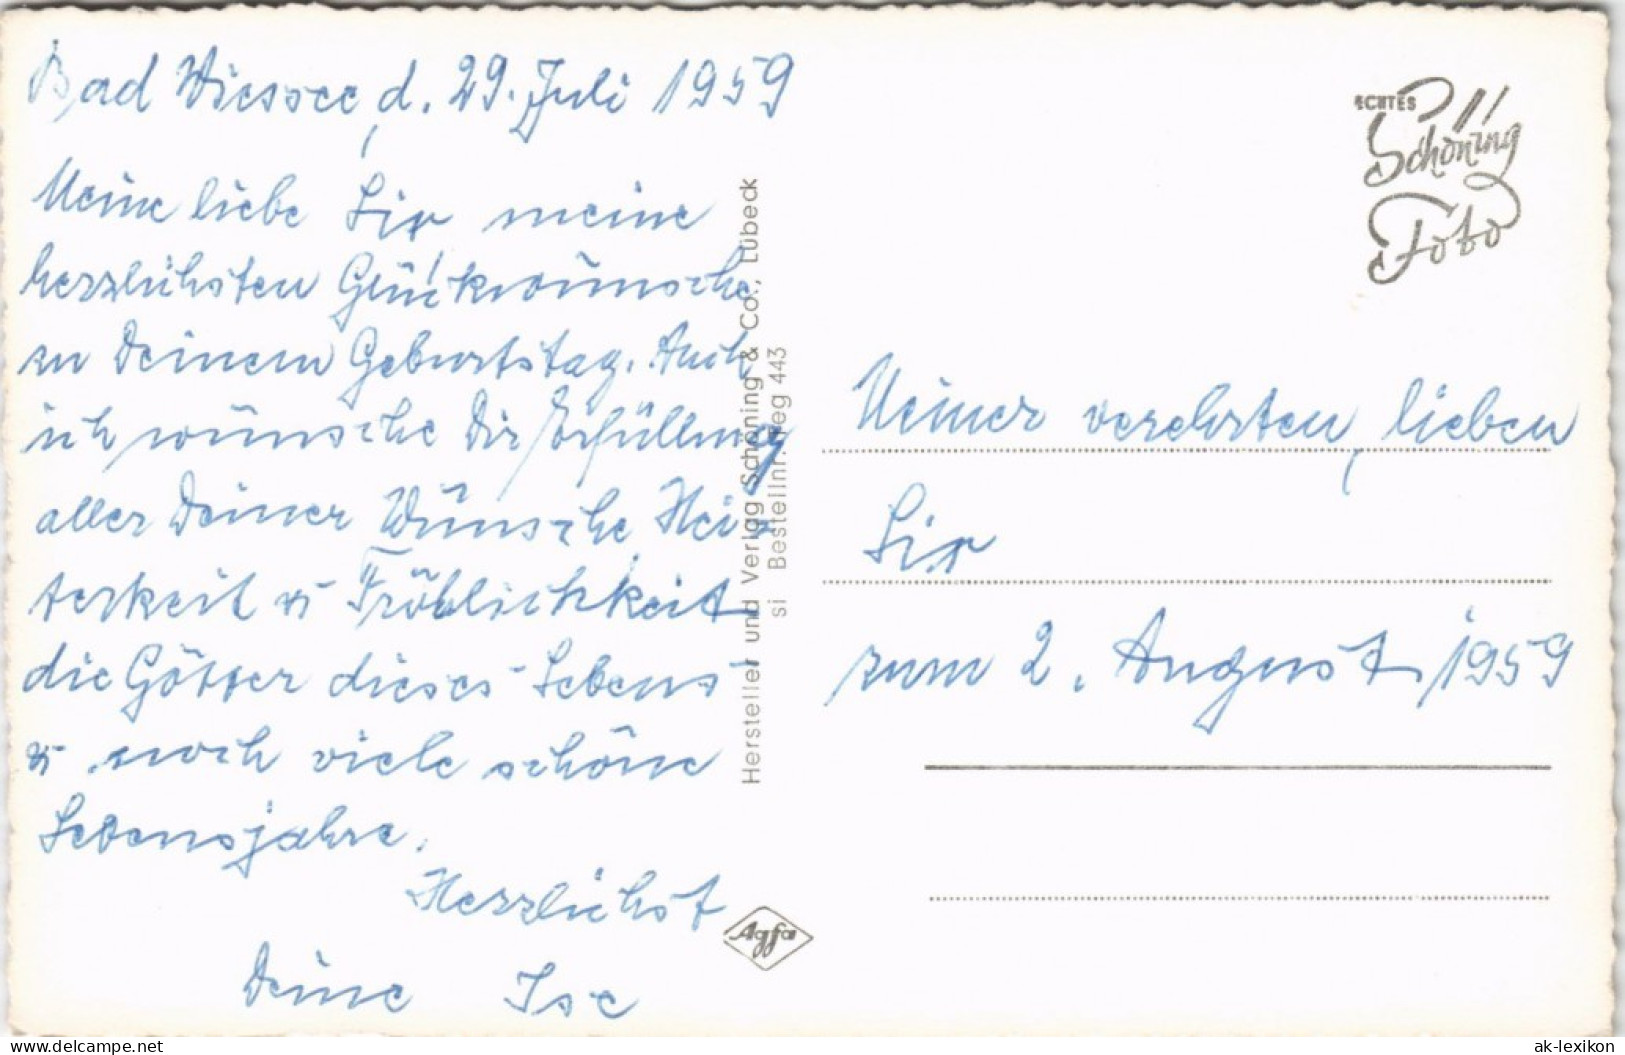 Bad Wiessee, d. 29. Juli 1959
Meine liebe Lix meine
herzlichsten Glückwünsche
zu Deinem Geburtstag. Auch
ich wünsche Dir Erfüllung
aller Deiner Wünsche, Hei-
terkeit u. Fröhlichkeit
die Götter dieses Lebens
u. noch viele schöne
Lebensjahre.
Herzlichst
Deine Ise
Hersteller und Verlag Schöning & Co., Lübeck
si Bestellnr. 443
Agfa
ECHTES
Schöning
Foto
Meiner verehrten, lieben
Lix
zum 2. August 1959
www.ansichtskarten-center.de
ak-lexikon